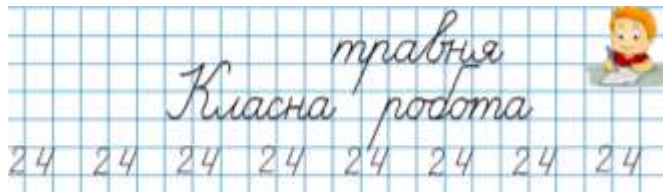 травня
Класна робота
24 24 24 24 24 24 24 24